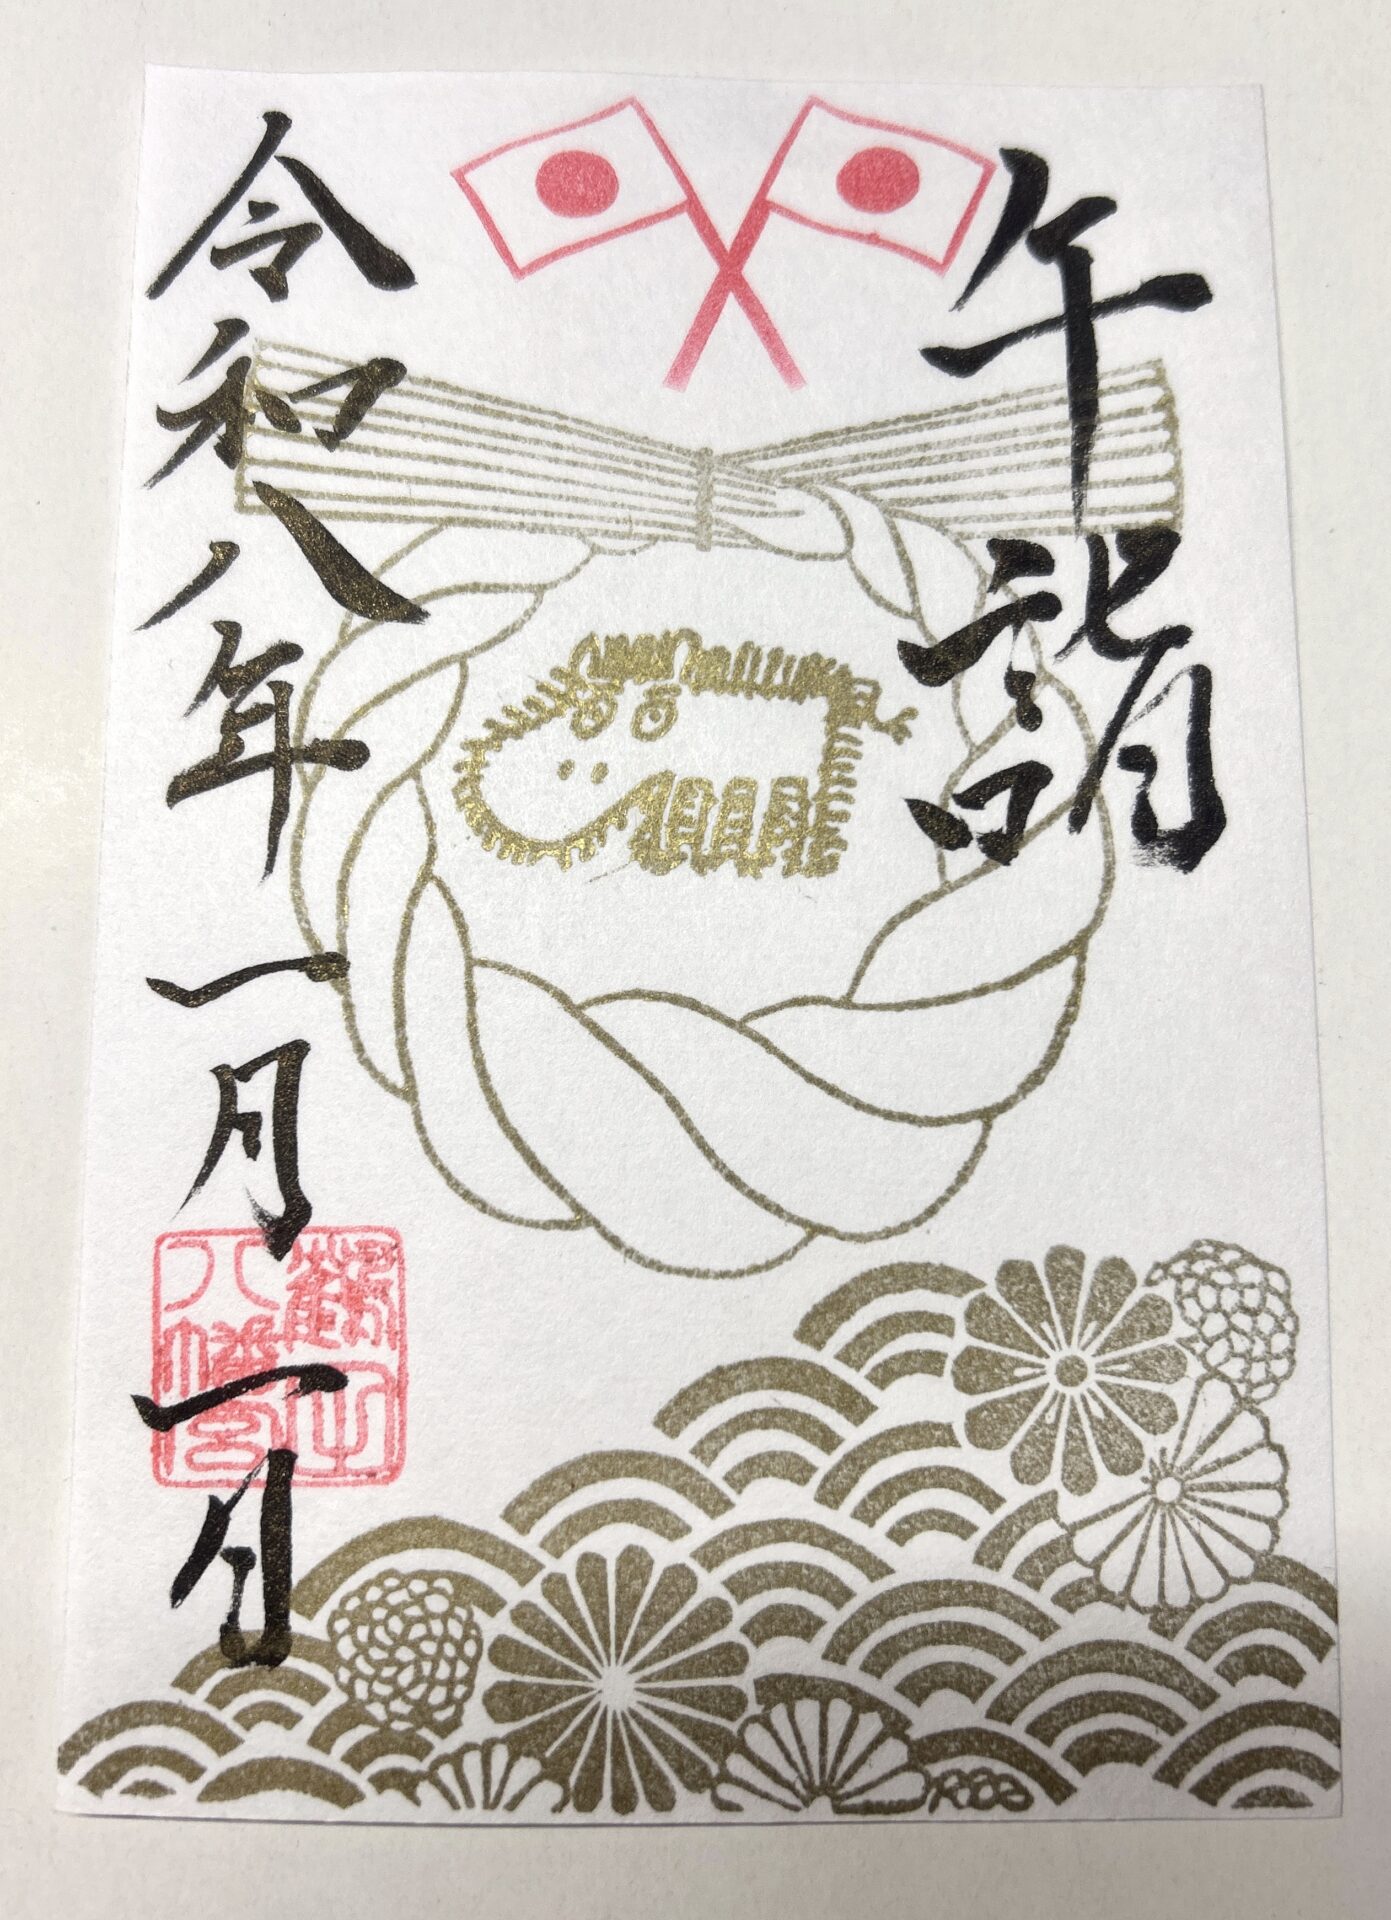 午詣
令和八年一月一日
八幡宮